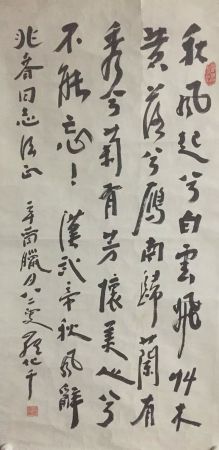 秋风起兮白雲飛艸木
黄落兮雁南歸蘭有
秀兮菊有芳懷美人兮
不能忘！漢武帝秋风辭
兆春同志法正
辛酉臘月